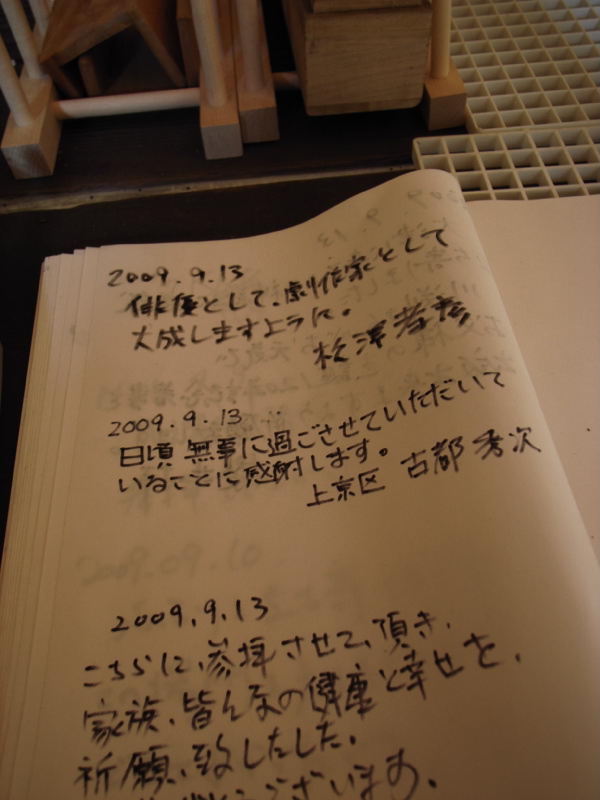 2009.9.13
俳優として、劇作家として
大成しますように。
松澤孝彦
2009.9.13
日頃 無事に過ごさせていただいて
いることに感謝します。
上京区 古都秀次
2009.9.13
こちらに、参拝させて、頂き、
家族、皆んなの健康と幸せを、
祈願、致しました。
ございます。